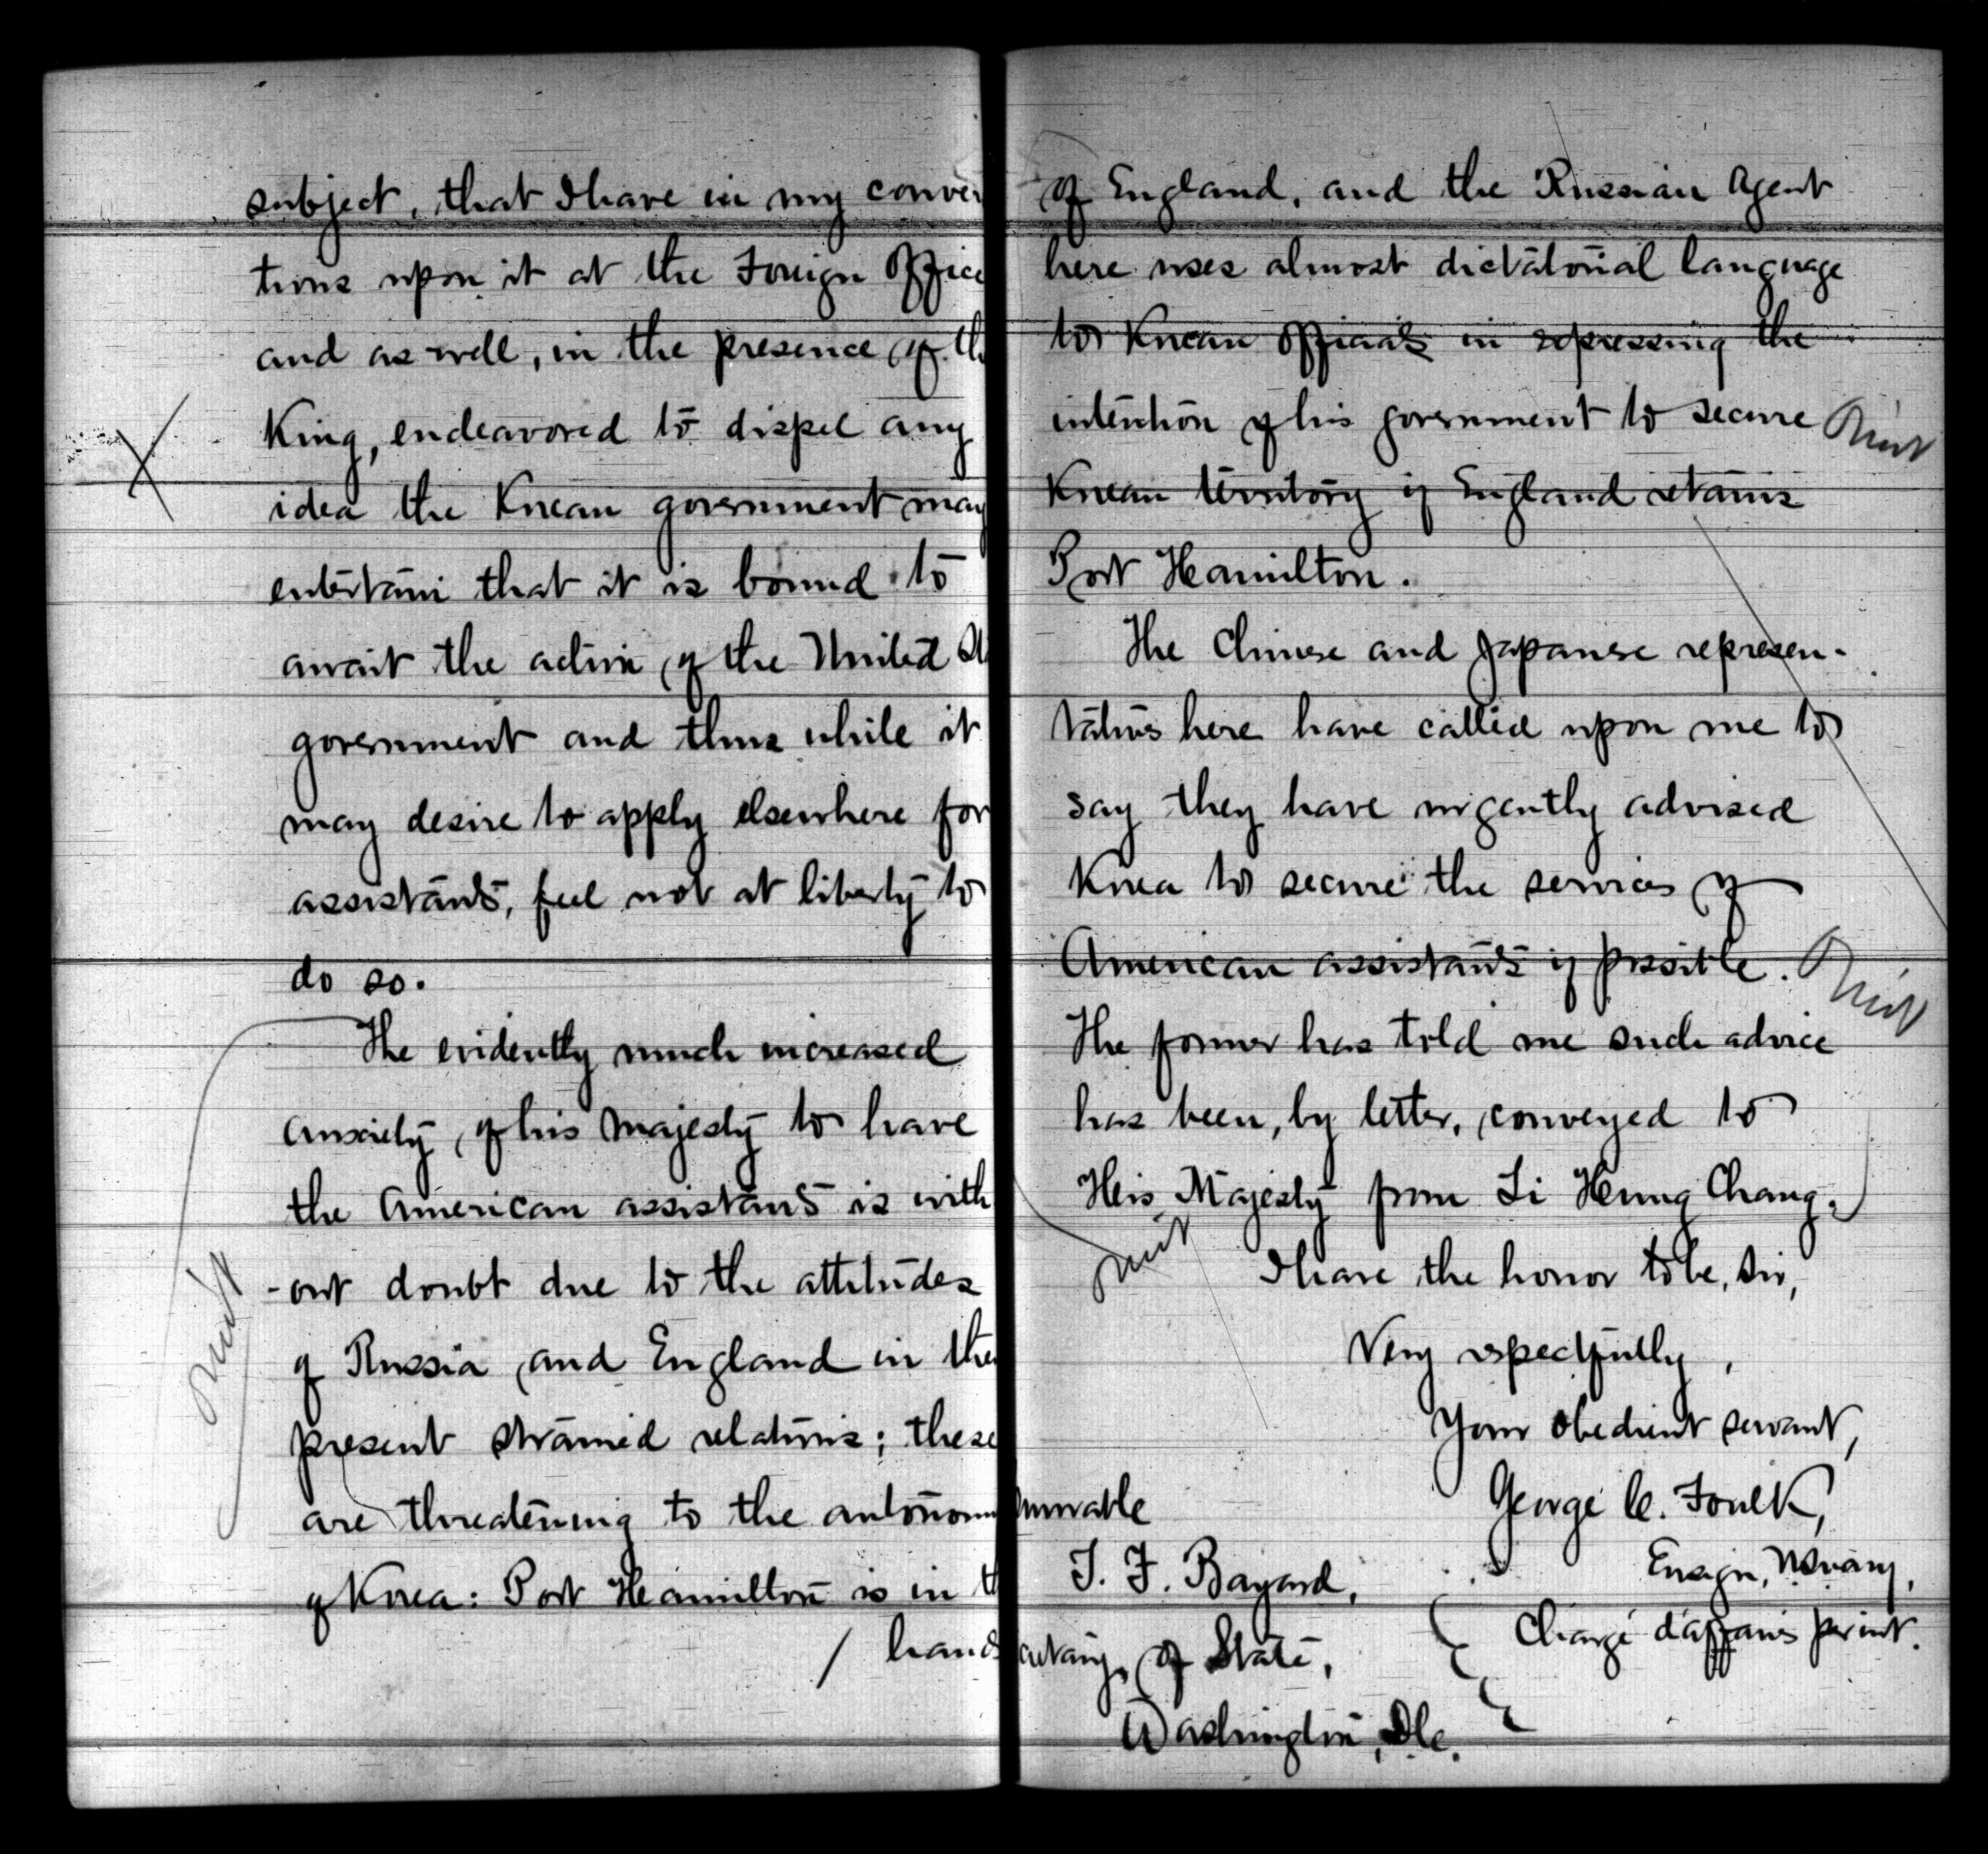 subject, that I have in my conver
tions upon it at the Foreign Office
and as well, in the presence of th
King, endeavored to dispel any
idea the Korean government may
entertain that it is bound to
await the action of the United St
government and thus while it
may desire to apply elsewhere for
assistants, feel not at liberty to
do so.
The evidently much increased
anxiety of his Majesty to have
the American assistants is with
-out doubt due to the attitudes
of Russia and England in the
present strained relations; these
are threatening to the autonom
of Korea: Port Hamilton is in t
/ hands
omit
of England, and the Russian Agent
here uses almost dictatorial language
to Korean officials in expressing the
intention of his government to secure
omit
Korean territory if England retains
Port Hamilton.
The Chinese and Japanese represen-
tatives here have called upon me to
say they have urgently advised
Korea to secure the services of
American assistants if possible.
omit
The former has told me such advice
has been, by letter, conveyed to
His Majesty from Li Hung Chang.
omit
I have the honor to be, Sir,
Very respectfully,
Your obedient servant,
George C. Foulk,
Ensign, U.S. Navy,
Chargé d'affaires per int.
onorable
T. F. Bayard,
cretary of State,
Washington, D.C.